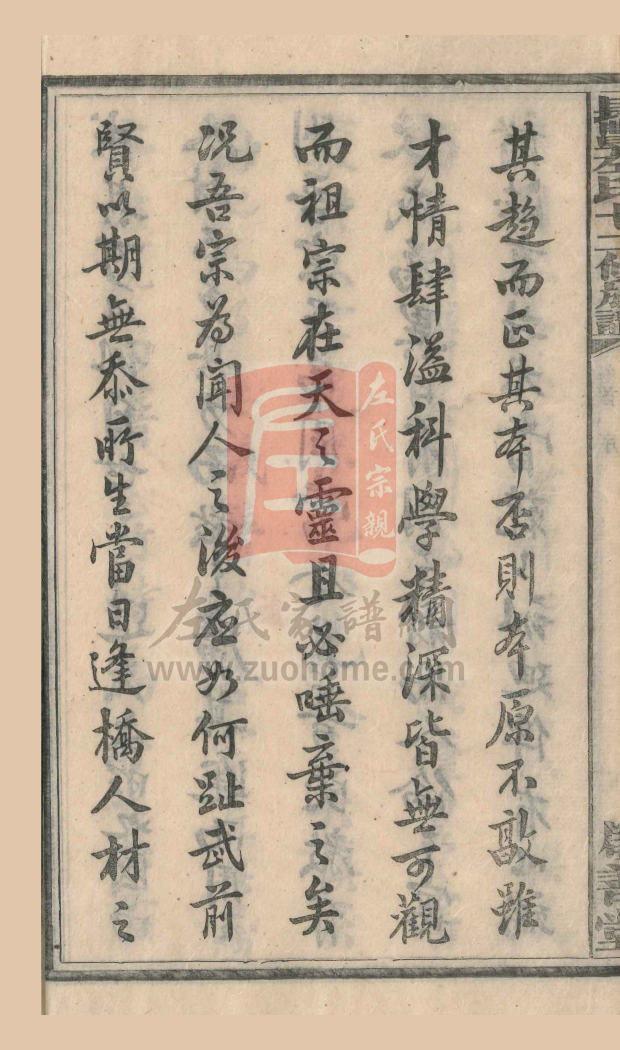 其趨而正其本否則本原不敦雖
才情肆溢科學精深皆無可觀
而祖宗在天之靈且必唾棄之矣
况吾宗為聞人之後應如何趾武前
賢以期無忝所生當日逢橋人材之
左氏十二修族譜
善堂
左氏宗親
左氏家譜網
www.zuohome.com